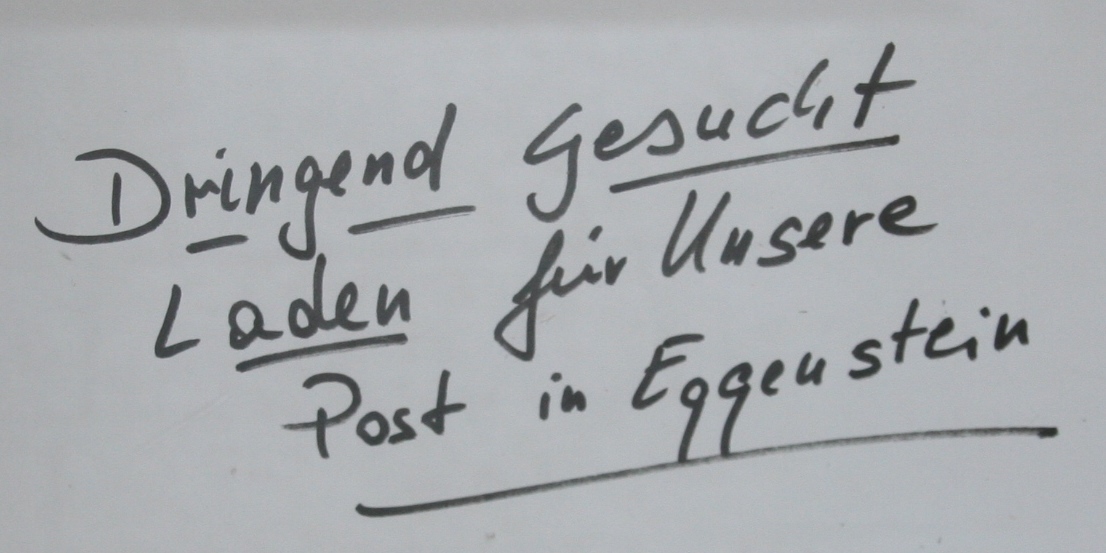 Dringend gesucht
Laden für Unsere
Post in Eggenstein